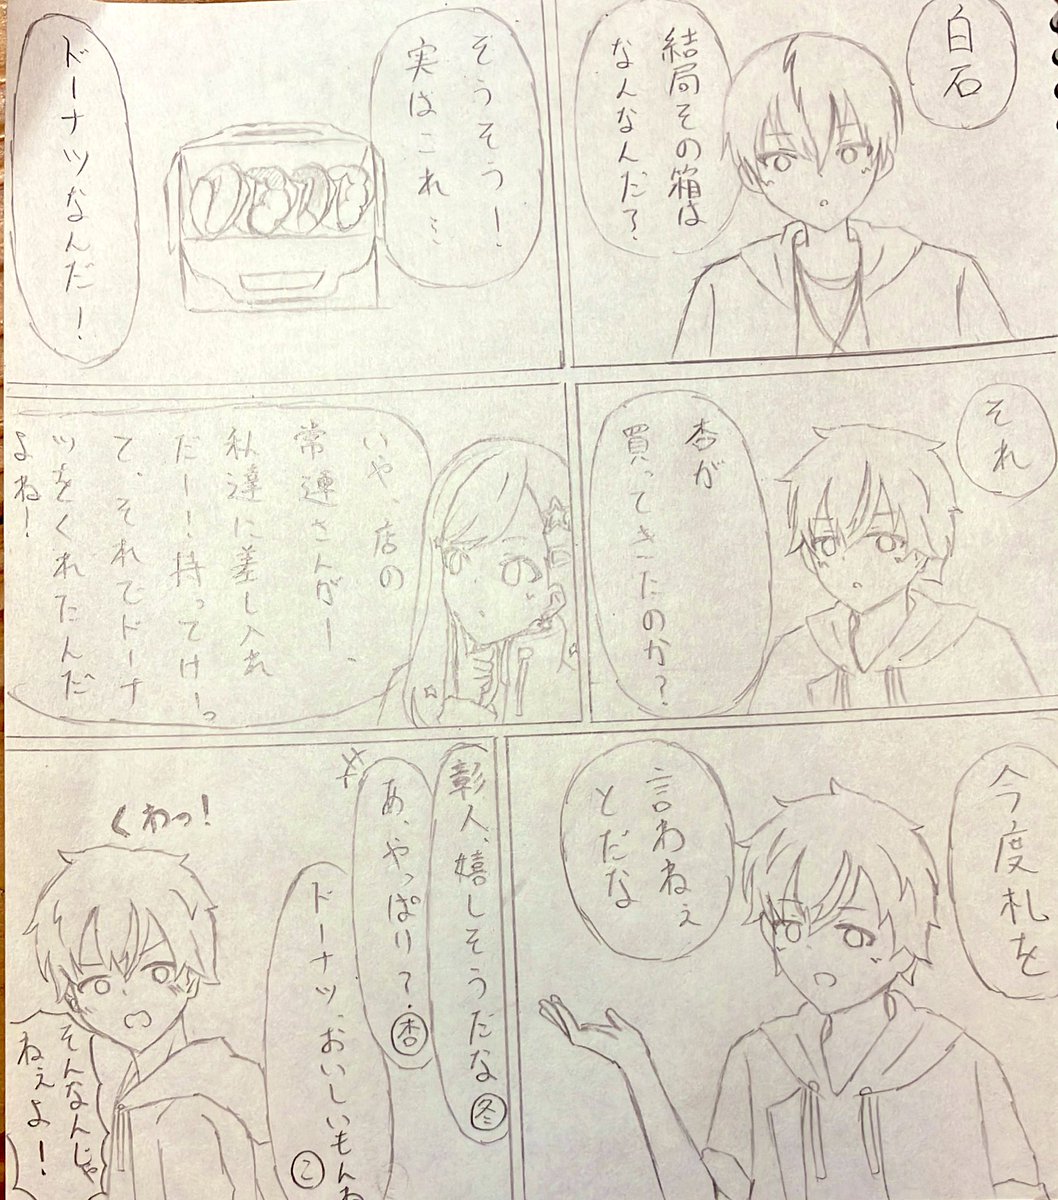 白石
結局その箱は
なんなんだ?
そうそう!
実はこれ…
ドーナツなんだ!
それ
杏が
買ってきたのか?
いや、店の
常連さんがー、
私達に差し入れ
だー!持ってけーっ
て、それでドーナ
ツをくれたんだ
よね!
今度札を
言わねぇ
とだな
彰人、嬉しそうだな 冬
あ、やっぱり? 杏
ドーナツ、おいしいもんね こ
くわっ!
そんなんじゃ
ねぇよ!